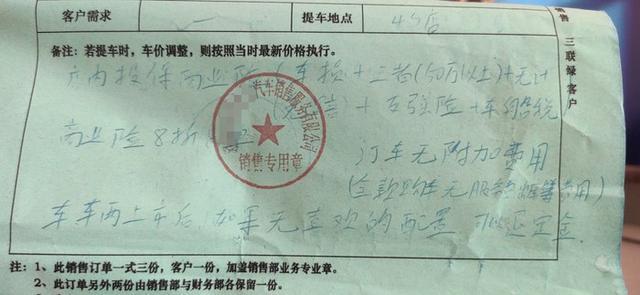 客户需求 提车地点 4S店
备注：若提车时，车价调整，则按照当时最新价格执行。
店内投保商业险(车损+三者(50万以上)+无计
+交强险+车船税)
汽车销售服务有限公司
销售专用章
商业险8折
订车无附加费用
(全款购车无服务 等费用)
车车两上市后，如果无喜欢的配置 退定金.
注：1、此销售订单一式三份，客户一份，加盖销售部业务专业章。
2、此订单另外两份由销售部与财务部各保留一份。
销售 三联绿客户